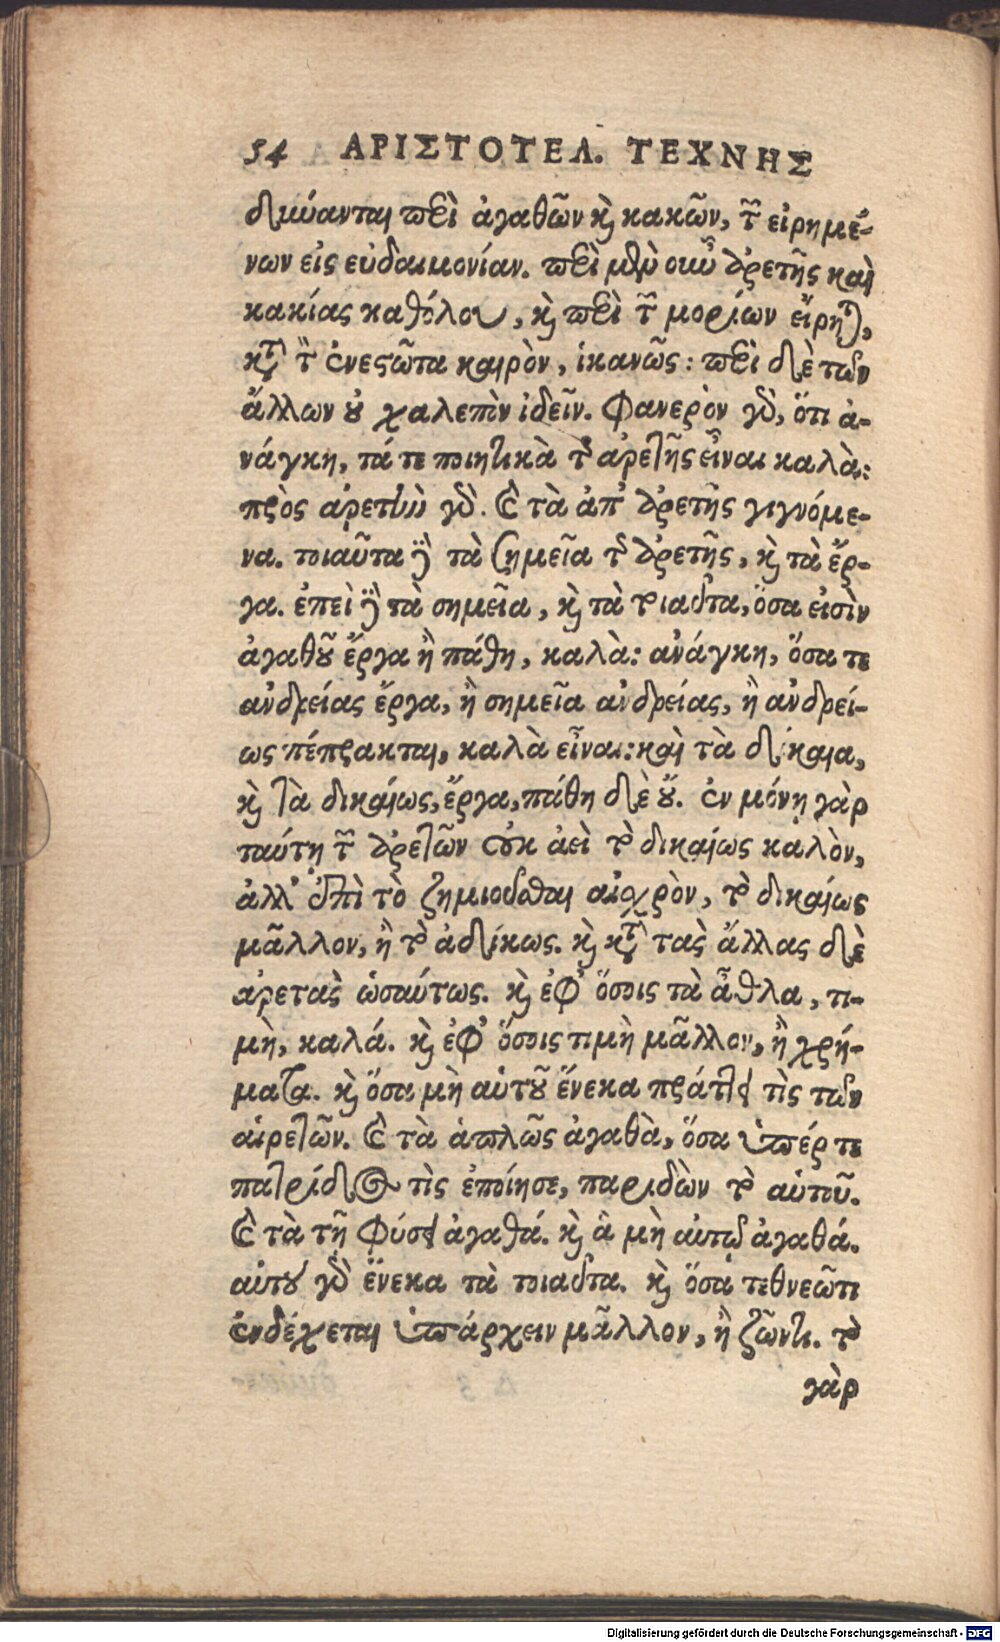 54 ΑΡΙΣΤΟΤΕΛ. ΤΕΧΝΗΣ
δύνανται περὶ ἀγαθῶν καὶ κακῶν, τῶν εἰρημέ-
νων εἰς εὐδαιμονίαν. περὶ μὲν οὖν ἀρετῆς καὶ
κακίας καθόλου, καὶ περὶ τῶν μορίων εἴρηται,
κατὰ τὸν ἐνεστῶτα καιρὸν, ἱκανῶς: περὶ δὲ τῶν
ἄλλων οὐ χαλεπὸν ἰδεῖν. φανερὸν γὰρ, ὅτι ἀ-
νάγκη, τά τε ποιητικὰ τῆς ἀρετῆς εἶναι καλὰ:
πρὸς ἀρετὴν γὰρ. καὶ τὰ ἀπ' ἀρετῆς γιγνόμε-
να. τοιαῦτα δὲ τὰ σημεῖα τῆς ἀρετῆς, καὶ τὰ ἔρ-
γα. ἐπεὶ δὲ τὰ σημεῖα, καὶ τὰ τοιαῦτα, ὅσα εἰσὶν
ἀγαθοῦ ἔργα ἢ πάθη, καλὰ: ἀνάγκη, ὅσα τε
ἀνδρείας ἔργα, ἢ σημεῖα ἀνδρείας, ἢ ἀνδρεί-
ως πέπρακται, καλὰ εἶναι: καὶ τὰ δίκαια,
καὶ τὰ δικαίως, ἔργα, πάθη δὲ οὔ. ἐν μόνῃ γὰρ
ταύτῃ τῶν ἀρετῶν οὐκ ἀεὶ τὸ δικαίως καλὸν,
ἀλλ' ἐπὶ τὸ ζημιοῦσθαι αἰσχρὸν, τὸ δικαίως
μᾶλλον, ἢ τὸ ἀδίκως. καὶ κατὰ τὰς ἄλλας δὲ
ἀρετὰς ὡσαύτως. καὶ ἐφ' ὅσοις τὰ ἆθλα, τι-
μὴ, καλά. καὶ ἐφ' ὅσοις τιμὴ μᾶλλον, ἢ χρή-
ματα. καὶ ὅσα μὴ αὑτοῦ ἕνεκα πράττει τὶς τῶν
αἱρετῶν. καὶ τὰ ἁπλῶς ἀγαθὰ, ὅσα ὑπέρ τε
πατρίδος τὶς ἐποίησε, παριδὼν τὸ αὑτοῦ.
καὶ τὰ τῇ φύσει ἀγαθά. καὶ ἃ μὴ αὑτῷ ἀγαθά.
αὑτοῦ γὰρ ἕνεκα τὰ τοιαῦτα. καὶ ὅσα τεθνεῶτι
ἐνδέχεται ὑπάρχειν μᾶλλον, ἢ ζῶντι. τὸ
γὰρ
Digitalisierung gefördert durch die Deutsche Forschungsgemeinschaft - DFG